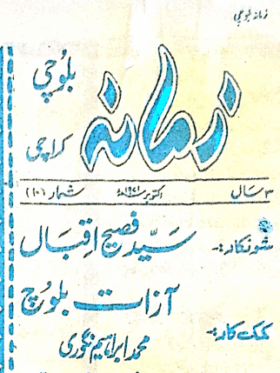 زمانہ بلوچی
بلوچی
زمانہ
کراچی
۳ سال اکتوبر ۱۹۷۱ء شمار (۱۰)
شونکار:- سید فصیح اقبال
آزات بلوچ
کمک کار:- محمد ابراہیم نگوری